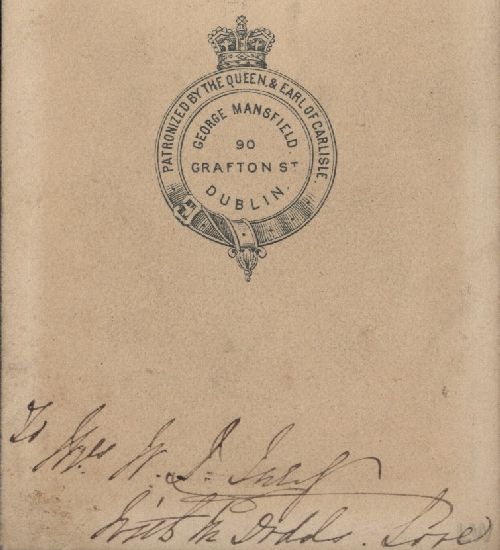 PATRONIZED BY THE QUEEN, & EARL OF CARLISLE.
GEORGE MANSFIELD.
90
GRAFTON ST
DUBLIN.
To Mrs W. J.
With M Dodds. Love